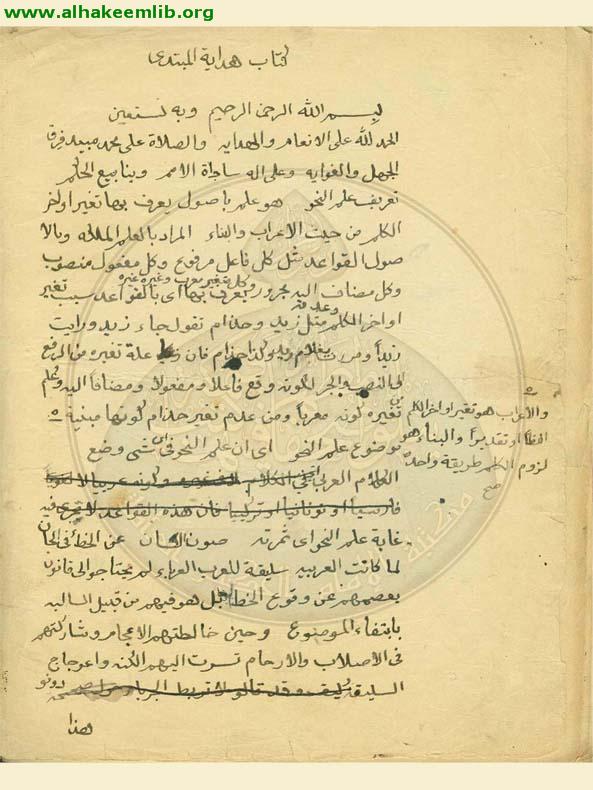 www.alhakeemlib.org
كتاب هداية المبتدى
بسم الله الرحمن الرحيم وبه نستعين
الحمد لله على الانعام والهدايه والصلاة على محمد مبيد فرق
الجهل والغوايه وعلى اله ساداة الامم وينابيع الحكم
تعريف علم النحو هو علم باصول يعرف بها تغير اواخر
الكلم من حيث الاعراب والبناء المراد بالعلم الملكه وبالا
صول القواعد مثل كل فاعل مرفوع وكل مفعول منصوب
وكل مضاف اليه مجرور وكل متغير معرب وغيره غيره يعرف بها اى بالقواعد سبب تغير
اواخر الكلم وعدمه مثل زيد وحذام تقول جاء زيد ورايت
زيداً ومررت بغلام زيد وكذا حذام فان علة تغيره من الرفع
الى النصب والجر لكونه وقع فاعلا ومفعولا ومضافاً اليه وعلم
من تغيره كونه معرباً ومن عدم تغير حذام كونها مبنية
والاعراب هو تغير اواخر الكلم
لفظاً او تقديراً والبناء هو
لزوم الكلم طريقة واحدة
صح
موضوع علم النحو اى ان علم النحو فى اى شى وضع
الكلام العربى
فارسيا او يونانيا او تركيا فان هذه القواعد لا تجرى فيه
غاية علم النحو اى ثمرته صون اللسان عن الخطأ فى
لما كانت العربيه سليقة للعرب العرباء لم يحتاجوا الى قانون
يعصمهم عن وقوع الخطأ بل هو فيهم من قبيل السالبه
بانتفاء الموضوع وحين خالطتهم الاعجام وشاركتهم
فى الاصلاب والارحام تسرت اليهم الكنه واعوجاج
السليقه
هذا